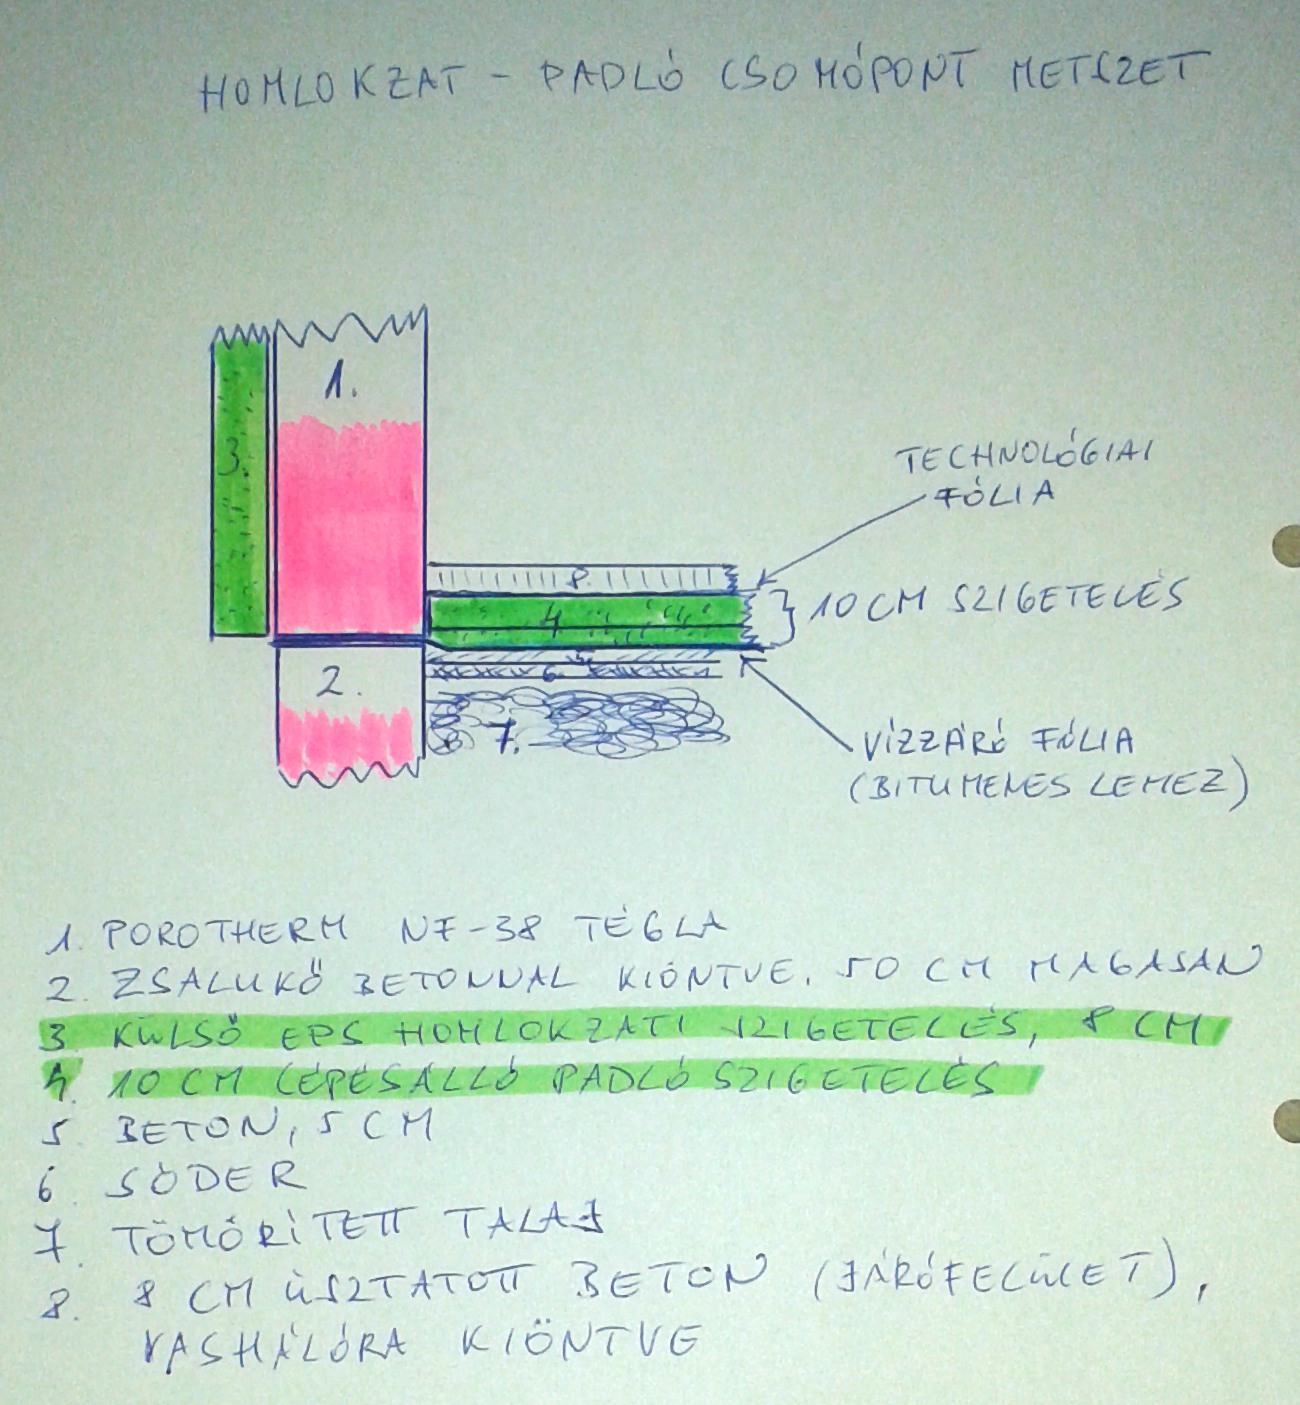 HOMLOKZAT - PADLÓ CSOMÓPONT METSZET
1.
3.
TECHNOLÓGIAI
FÓLIA
8.
4
10 CM SZIGETELÉS
5
6
2.
7.
VÍZZÁRÓ FÓLIA
(BITUMENES LEMEZ)
1. POROTHERM NF-38 TÉGLA
2. ZSALUKŐ BETONNAL KIÖNTVE, 50 CM MAGASAN
3 KÜLSŐ EPS HOMLOKZATI SZIGETELÉS, 8 CM
4. 10 CM LÉPÉSÁLLÓ PADLÓ SZIGETELÉS
5 BETON, 5 CM
6 SÓDER
7. TÖMÖRÍTETT TALAJ
8. 8 CM ÚSZTATOTT BETON (JÁRÓFELÜLET),
VASHÁLÓRA KIÖNTVE